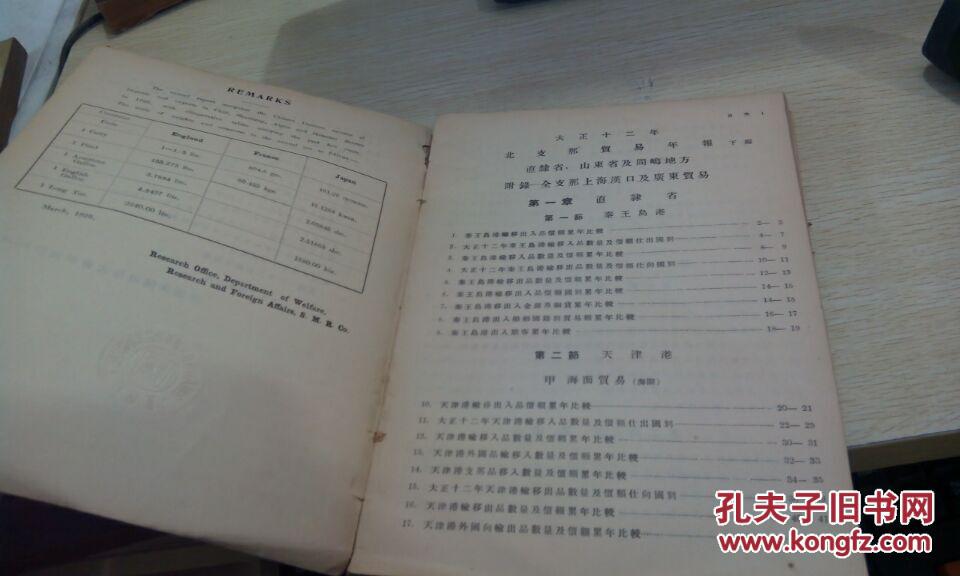 REMARKS
England
France
Japan
1 Catty
1—1/3 lbs.
1 Picul
2240.00 lbs.
March, 1925.
Research Office, Department of Welfare,
Research and Foreign Affairs, S. M. R. Co.
目次 1
大正十二年
北支那貿易年報 下編
直隷省、山東省及間嶋地方
附錄—全支那上海漢口及廣東貿易
第一章 直隷省
第一節 秦王島港
1. 秦王島港輸移出入品價額累年比較 2—3
2. 大正十二年秦王島港輸移入品數量及價額仕出國別 4—7
3. 秦王島港輸移入品數量及價額累年比較 8—9
4. 大正十二年秦王島港輸移出品數量及價額仕向國別 10—11
5. 秦王島港輸移出品數量及價額累年比較 12—13
6. 秦王島港輸移出入品價額國別累年比較 14—15
7. 秦王島港移出入金銀及銅貨累年比較 14—15
8. 秦王島港出入船舶國籍別貿易額累年比較 16—17
9. 秦王島港出入旅客累年比較 18—19
第二節 天津港
甲 海面貿易 (海關)
10. 天津港輸移出入品價額累年比較 20—21
11. 大正十二年天津港輸移入品數量及價額仕出國別 22—29
12. 天津港輸移入品數量及價額累年比較 30—31
13. 天津港外國品輸移入數量及價額累年比較 32—33
14. 天津港支那品移入數量及價額累年比較 34—35
15. 大正十二年天津港輸移出品數量及價額仕向國別
16. 天津港輸移出品數量及價額累年比較
17. 天津港外國向輸出品數量及價額累年比較
孔夫子旧书网
www.kongfz.com